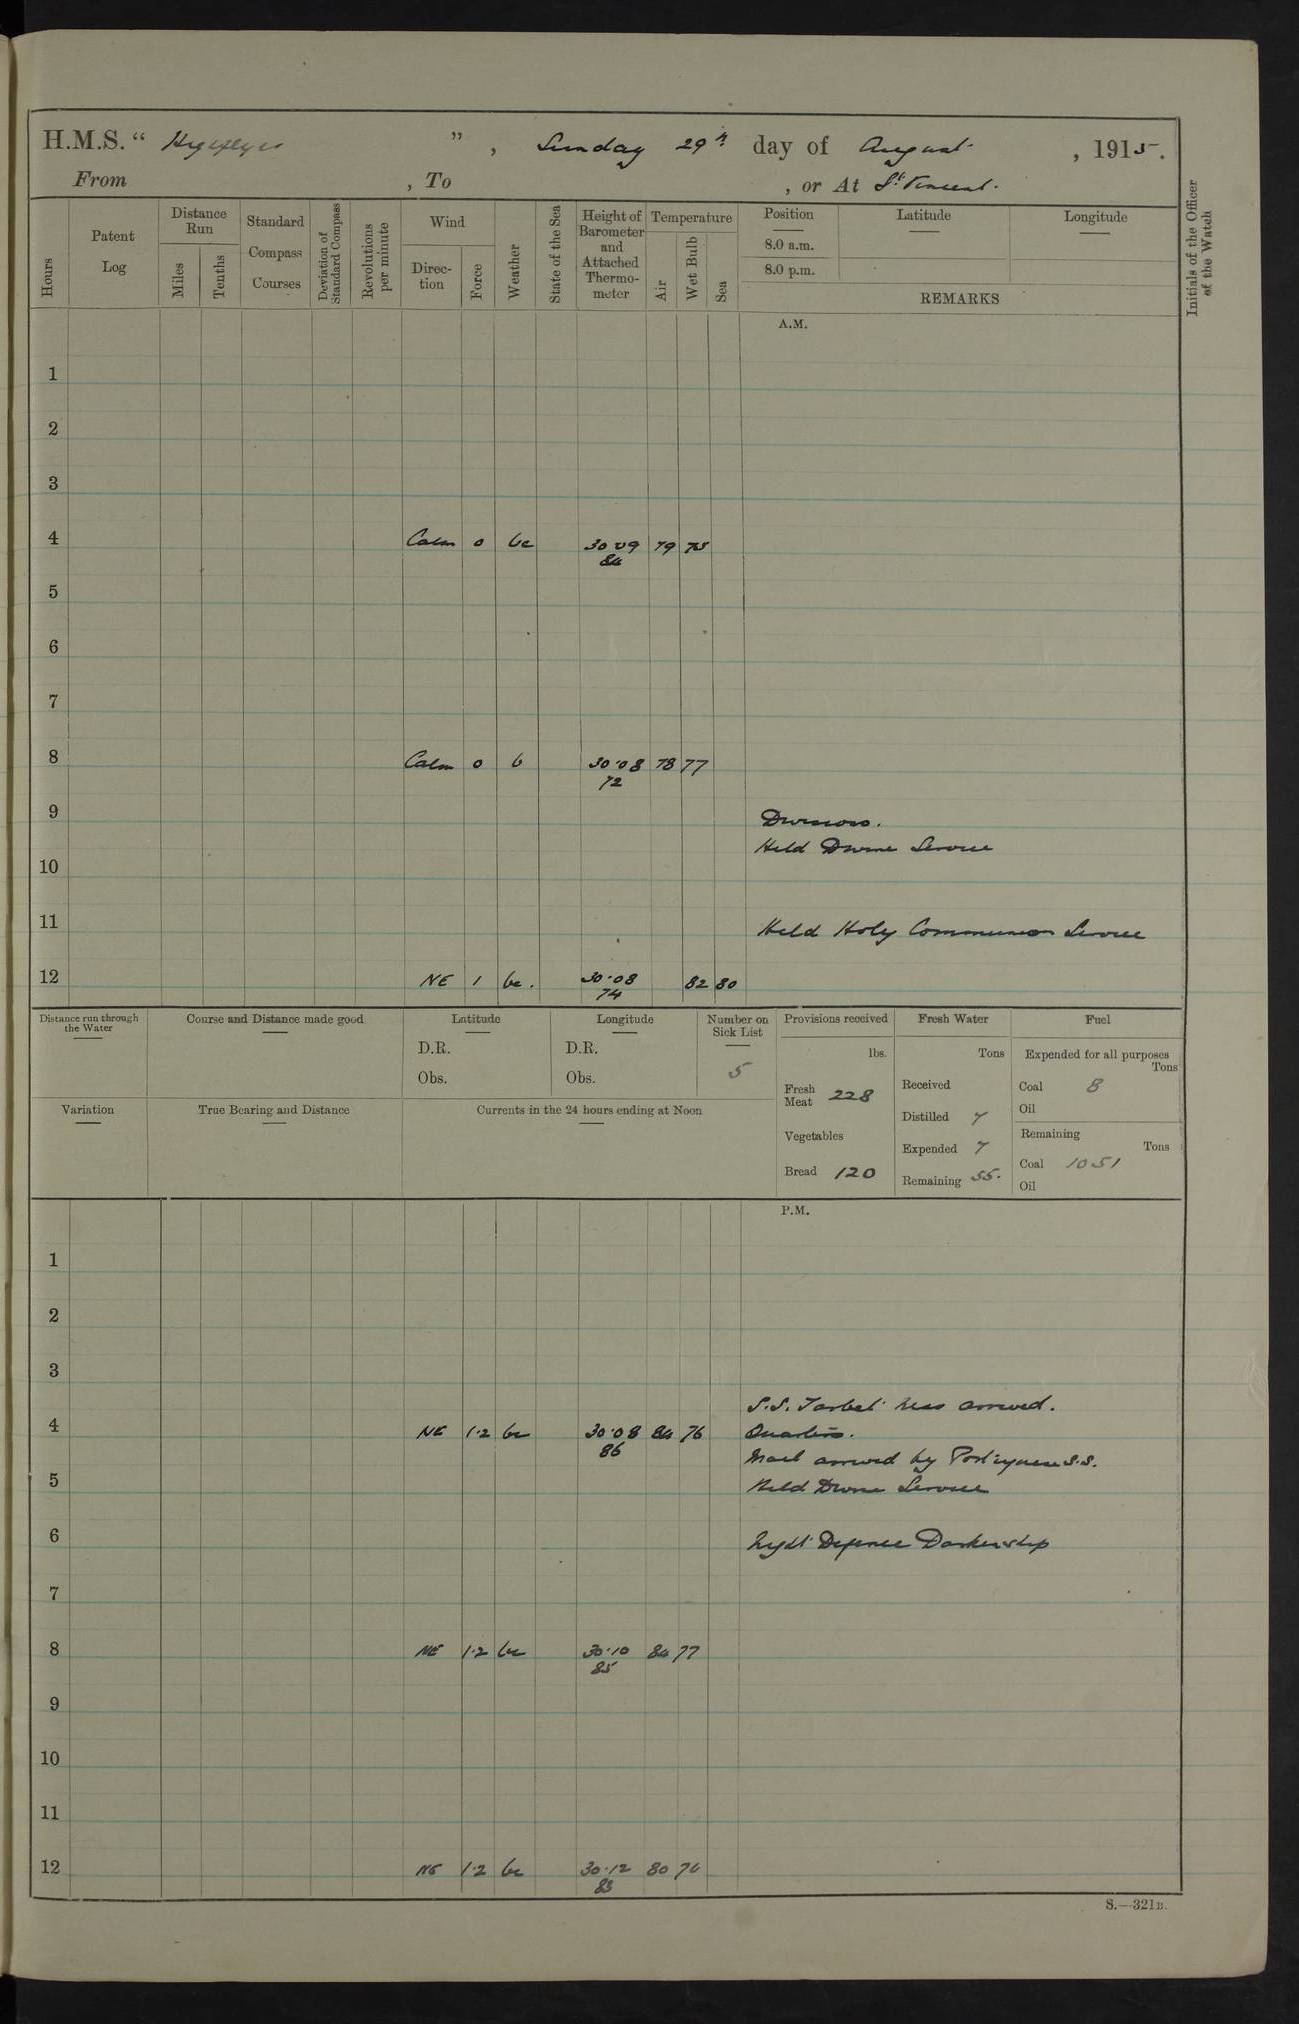 H.M.S. “ Highflyer ” , Sunday 29th day of August , 1915.
From , To , or At St Vincent.
Hours
Patent Log
Distance Run
Miles
Tenths
Standard Compass Courses
Deviation of Standard Compass
Revolutions per minute
Wind
Direc-tion
Force
Weather
State of the Sea
Height of Barometer and Attached Thermo-meter
Temperature
Air
Wet Bulb
Sea
Position
8.0 a.m.
8.0 p.m.
Latitude
Longitude
REMARKS
Initials of the Officer of the Watch
A.M.
1
2
3
4 Calm 0 bc 30.09 79 75
84
5
6
7
8 Calm 0 b 30.08 78 77
72
9 Divisions.
Held Divine Service
10
11 Held Holy Communion Service
12 NE 1 bc. 30.08 82 80
74
Distance run through the Water
Course and Distance made good
Latitude
D.R.
Obs.
Longitude
D.R.
Obs.
Number on Sick List
5
Provisions received
lbs.
Fresh Meat 228
Vegetables
Bread 120
Fresh Water
Tons
Received
Distilled 7
Expended 7
Remaining 55.
Fuel
Expended for all purposes
Tons
Coal 8
Oil
Remaining
Tons
Coal 1051
Oil
Variation
True Bearing and Distance
Currents in the 24 hours ending at Noon
P.M.
1
2
3
S.S. Tarbet Ness arrived.
4 NE 1.2 bc 30.08 84 76 Quarters.
86
Mail arrived by Portuguese S.S.
5 Held Divine Service
6 Night Defence Darken ship
7
8 NE 1.2 bc 30.10 84 77
85
9
10
11
12 NE 1.2 bc 30.12 80 76
83
S.—321B.